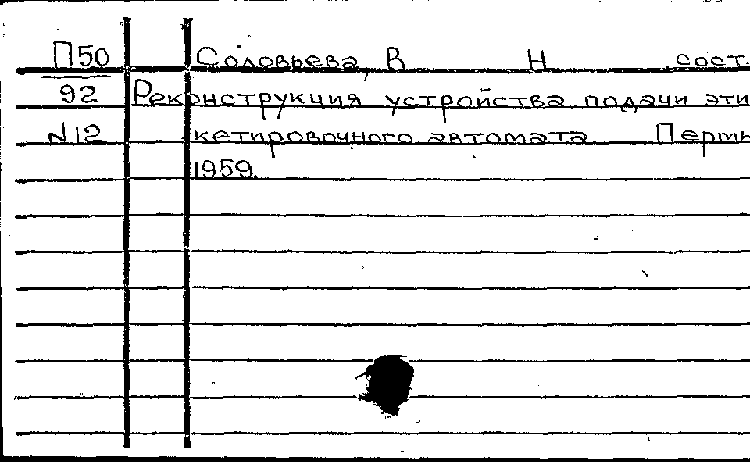 П50 Соловьева, В Н сост.
92 Реконструкция устройства подачи эти
N12 кетировочного автомата Пермь
1959.